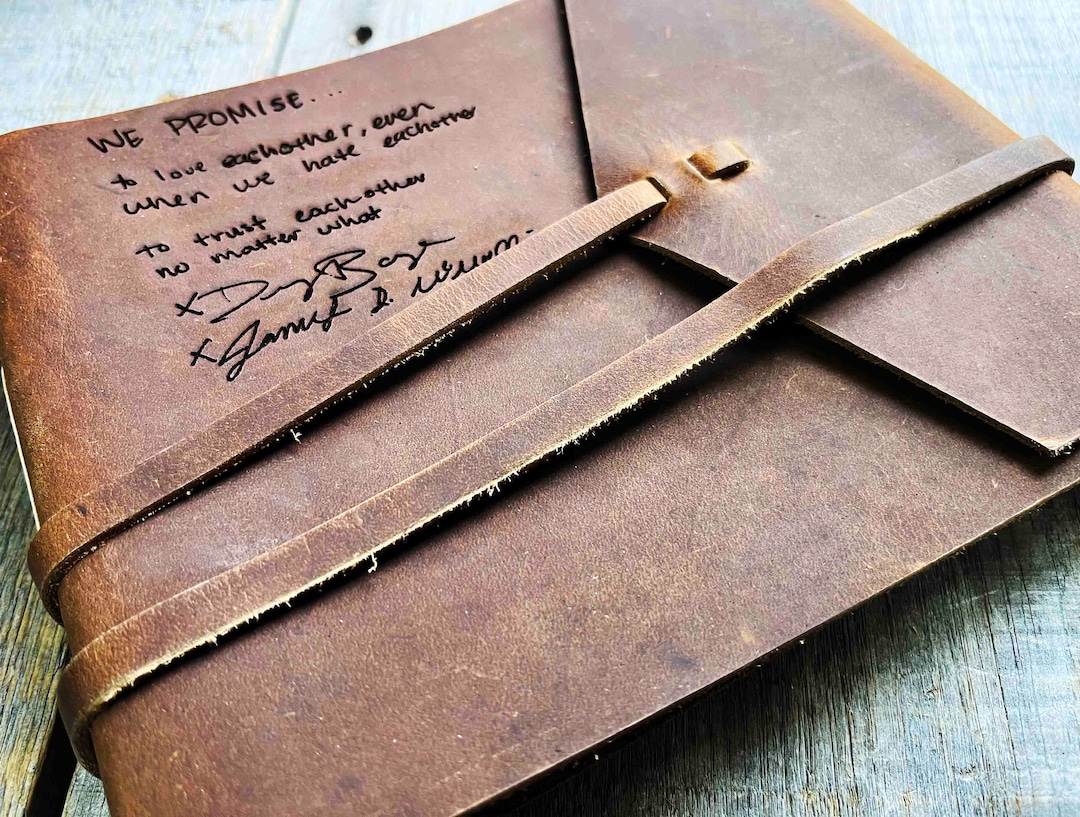 WE PROMISE....
to love eachother, even
when we hate eachother
to trust eachother
no matter what
x
x D.